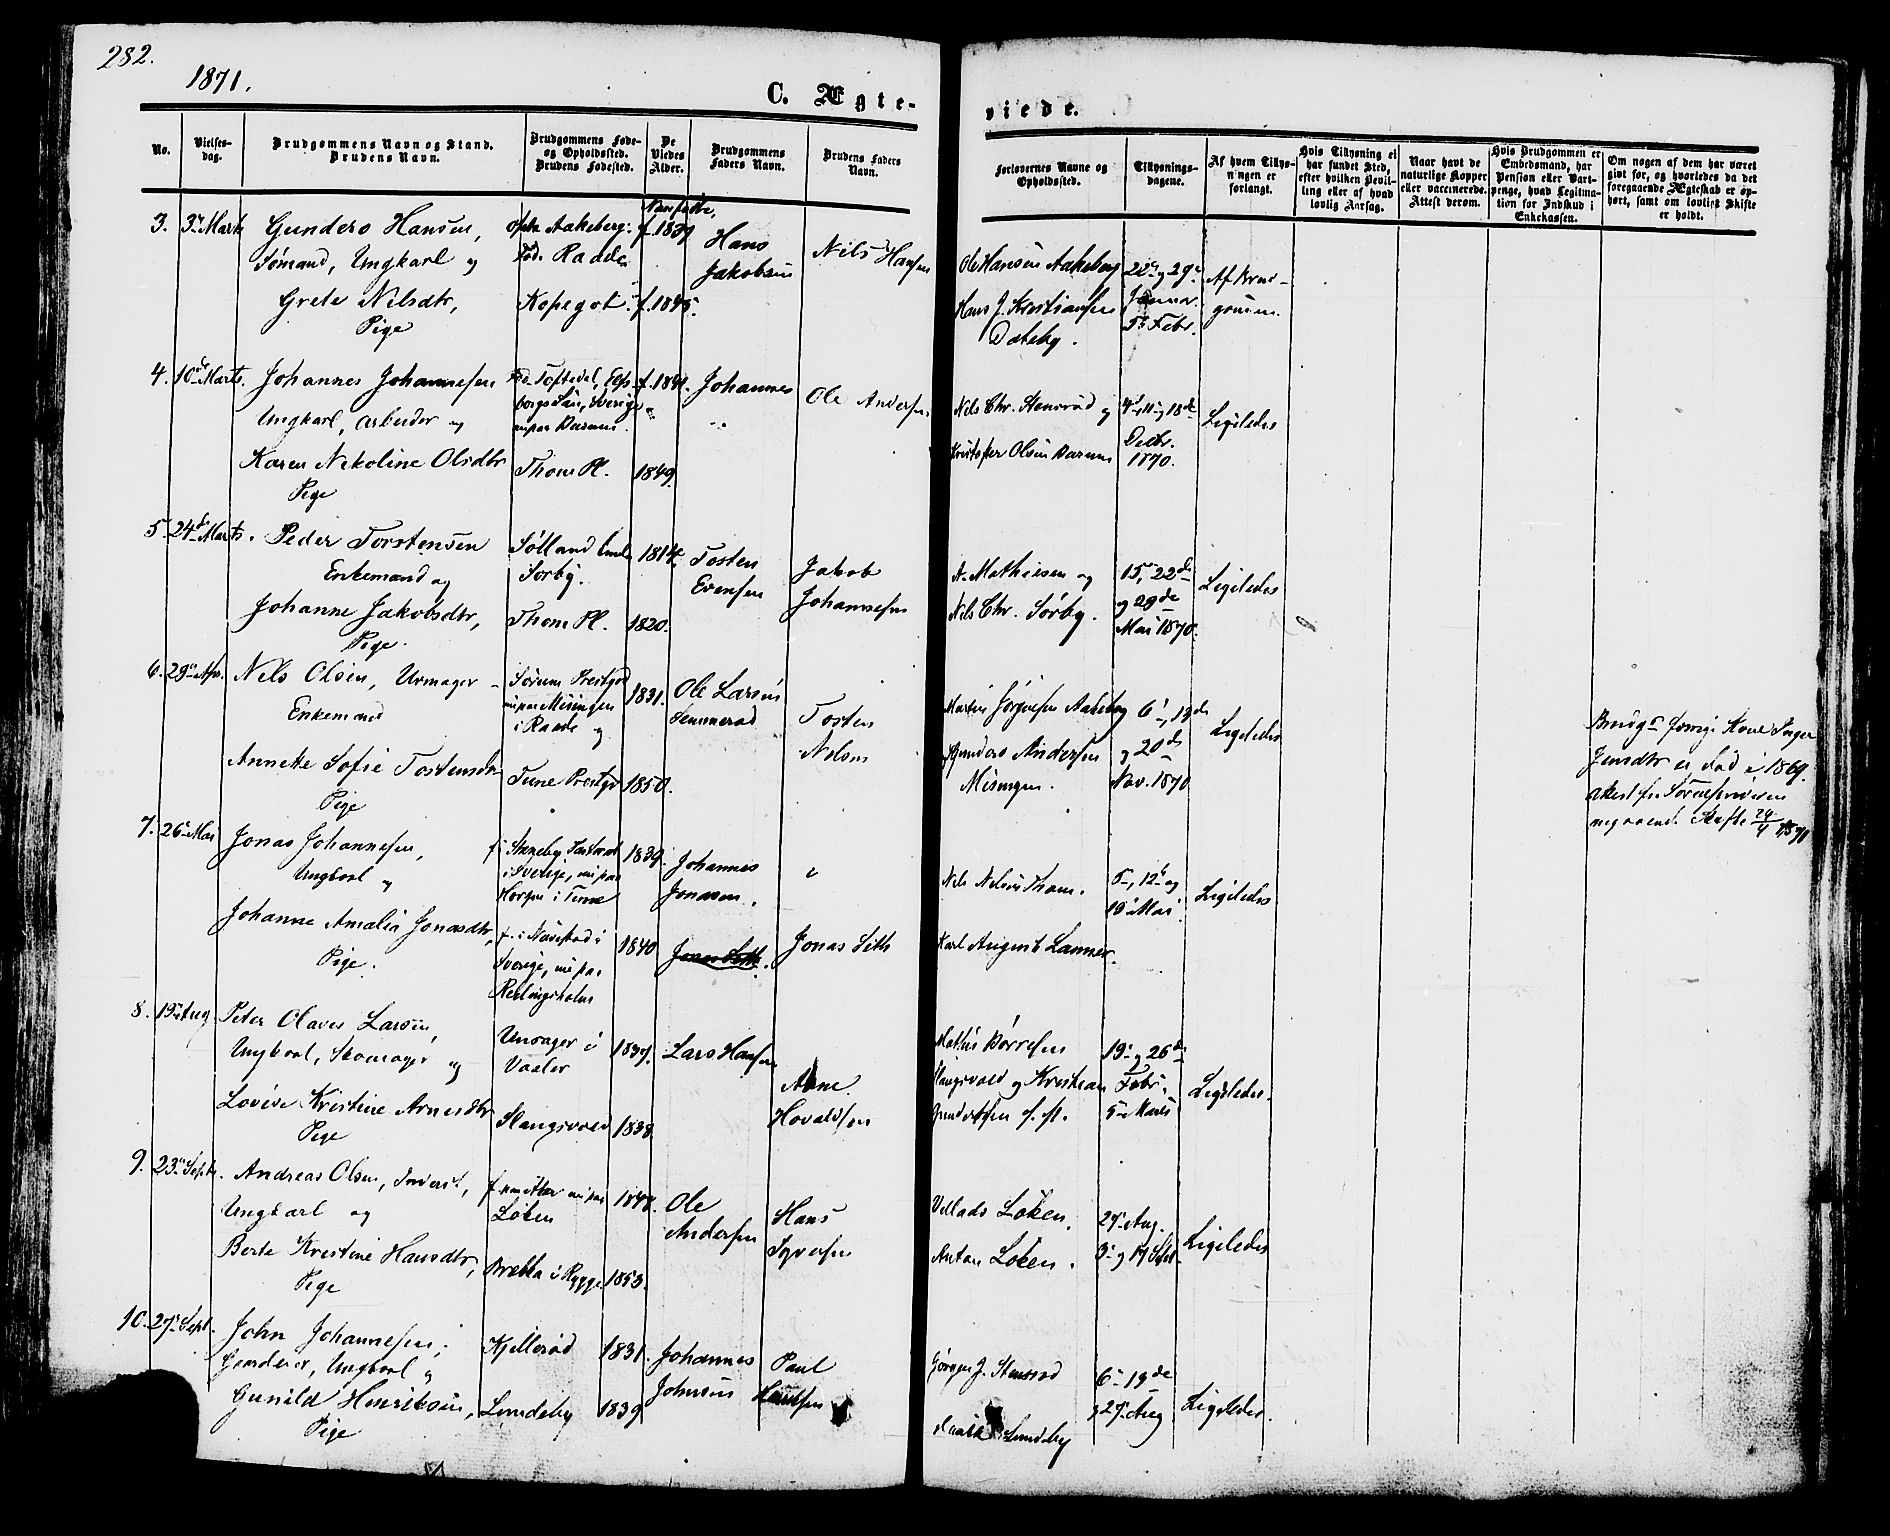 282.
1871.
C. Ægte-
viede.
No.
Vielses-
dag.
Brudgommens Navn og Stand.
Brudens Navn.
Brudgommens Føde-
og Opholdssted.
Brudens Fødested.
De
Viedes
Alder.
Brudgommens
Faders Navn.
Brudens Faders
Navn.
Forlovernes Navne og
Opholdssted.
Tillysnings-
dagene.
Af hvem Tillys-
ningen er
forlangt.
Hvis Tillysning ei
har fundet Sted,
efter hvilken Bevil-
ling eller af hvad
lovlig Aarsag.
Naar havt de
naturlige Kopper
eller vaccinerede.
Attest derom.
Hvis Brudgommen er
Embedsmand, har
Pension eller Vart-
penge, hvad Legitima-
tion for Indskud i
Enkekassen.
Om nogen af dem har været
gift før, og hvorledes da det
foregaaende Ægteskab er op-
hørt, samt om lovligt Skifte
er holdt.
3. 3 Marts
Gunders Hansen,
Sømand, Ungkarl og
Grete Nilsdtr,
Pige
Aakeberg.
Fød. Raade
Kopegot.
f. 1839
f. 1845.
Hans
Jakobsen
Nils Hansen
Ole Hansen Aakeberg
Hans J. Kristiansen
Dateby.
22 og 29
Januar.
5 Febr.
Af Brud-
gommen.
4. 10de Marts.
Johannes Johannesen
Ungkarl, Arbeider og
Karen Nikoline Olsdtr
Pige
Toftedal,
Sverige
Thom Pl.
f. 1841.
1849.
Johannes
Ole Andersen
Nils Chr. Stensrød og
Kristofer Olsen
4, 11 og 18de
Decbr.
1870.
Ligeledes
5 24de Marts.
Peder Torstensen
Enkemand og
Johanne Jakobsdtr,
Pige.
Sølland
Sørby.
Thom Pl.
1814.
1820.
Tosten
Evensen
Jakob
Johannesen
A. Mathiesen og
Nils Chr. Sørby.
15, 22de
og 29de
Mai 1870.
Ligeledes
6. 29
Nils Olsen, Urmager
Enkemand
Annette Sofie Tostensdtr
Pige
Sørum Prestgd
Misingen
i Raade og
Tune Prestgd
1831.
1850.
Ole Larsen
Semmerød
Tosten
Nilsen
Martin Jørgensen Aakeberg
Gunders Andersen
Misingen.
6, 13de
og 20de
Nov. 1870
Ligeledes
Brudg. forrige Kone Inger
Jensdtr er død i 1869.
Skifte 24/4 1871
7. 26 Mai
Jonas Johannesen,
Ungkarl og
Johanne Amalia Jonasdtr,
Pige.
f. Steneby
i Sverige,
i Tune
f. i Naverstad i
Sverige,
1839.
1840
Johannes
Jonasen.
Jonas Seth.
Jonas Seth
Nils Nilsen Thom.
Karl August Lanner.
5, 12 og
19 Mai.
Ligeledes
8. 19 Aug.
Peter Olaves Larsen,
Ungkarl, Skomager og
Lovise Kristine Arnesdtr
Pige
Unsager i
Vaaler
Slangsvold
1837.
1838.
Lars Hansen
Arne
Hovaldsen
Mathis Børresen
Slangsvold og Kristian
Gundersen
19 og 26de
Febr.
5 Marts
Ligeledes.
9. 23 Septr.
Andreas Olsen, Inderst,
Ungkarl og
Berte Kristine Hansdtr,
Pige
Løken
Brekka i Rygge
1848.
1853.
Ole
Andersen
Hans
Syversen
Vellads Løken.
Anton Løken.
27 Aug.
3 og 17 Sept.
Ligeledes
10. 27 Sept.
John Johannesen,
Gaardeier, Ungkarl og
Gunild Henriksen,
Pige
Kjellerød
Lundeby
1831.
1839
Johannes
Johnsen
Paul
Jørgen J. Stensrød
Lundeby
6 13de
27 Aug
Ligeledes.